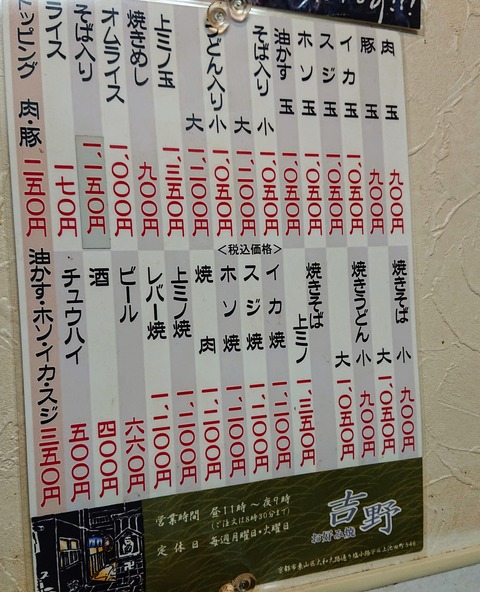 肉玉 九〇〇円
豚玉 九〇〇円
イカ玉 一、〇五〇円
スジ玉 一、〇五〇円
ホソ玉 一、〇五〇円
油かす玉 一、〇五〇円
そば入り 小 一、〇五〇円
大 一、二〇〇円
うどん入り 小 一、〇五〇円
大 一、二〇〇円
上ミノ玉 一、三五〇円
焼きめし 九〇〇円
オムライス 一、〇〇〇円
そば入り 一、一五〇円
ライス 一七〇円
トッピング 肉・豚 二五〇円 油かす・ホソ・イカ・スジ 三五〇円
<税込価格>
焼きそば 小 九〇〇円
大 一、〇五〇円
焼きうどん 小 九〇〇円
大 一、〇五〇円
焼きそば 上ミノ 一、三五〇円
イカ焼 一、二〇〇円
スジ焼 一、二〇〇円
ホソ焼 一、二〇〇円
焼肉 一、二〇〇円
上ミノ焼 一、二〇〇円
レバー焼 一、二〇〇円
ビール 六六〇円
酒 四〇〇円
チュウハイ 五〇〇円
お好み焼 吉野
営業時間 昼11時〜夜9時
(ご注文は8時30分まで)
定休日 毎週月曜日・火曜日
京都市東山区大和大路通り塩小路下る上池田町546